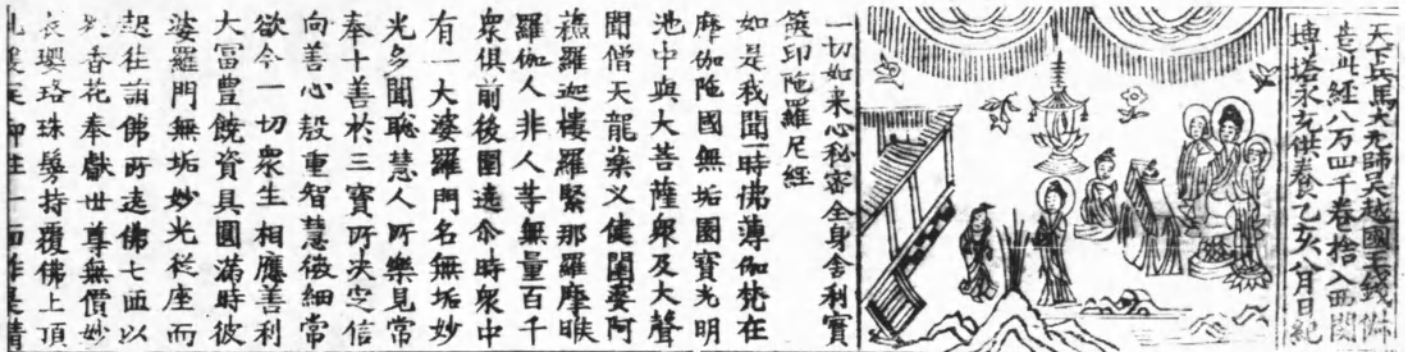 天下兵馬大元帥吳越國王錢俶
造此經八万四千卷捨入西關
塼塔永充供養乙亥八月日紀
一切如来心秘密全身舍利寶
篋印陁羅尼經
如是我聞一時佛薄伽梵在
摩伽陁國無垢園寶光明
池中與大菩薩衆及大聲
聞僧天龍藥叉健闥婆阿
蘓羅迦樓羅緊那羅摩睺
羅伽人非人等無量百千
衆俱前後圍遶尒時衆中
有一大婆羅門名無垢妙
光多聞聡慧人所樂見常
奉十善於三寶所决定信
向善心殷重智慧微細常
欲令一切衆生相應善利
大富豊饒資具圓滿時彼
婆羅門無垢妙光從座而
起往詣佛所遶佛七匝以
香花奉獻世尊無價妙
衣瓔珞珠鬘持覆佛上頂
却住一面作是請